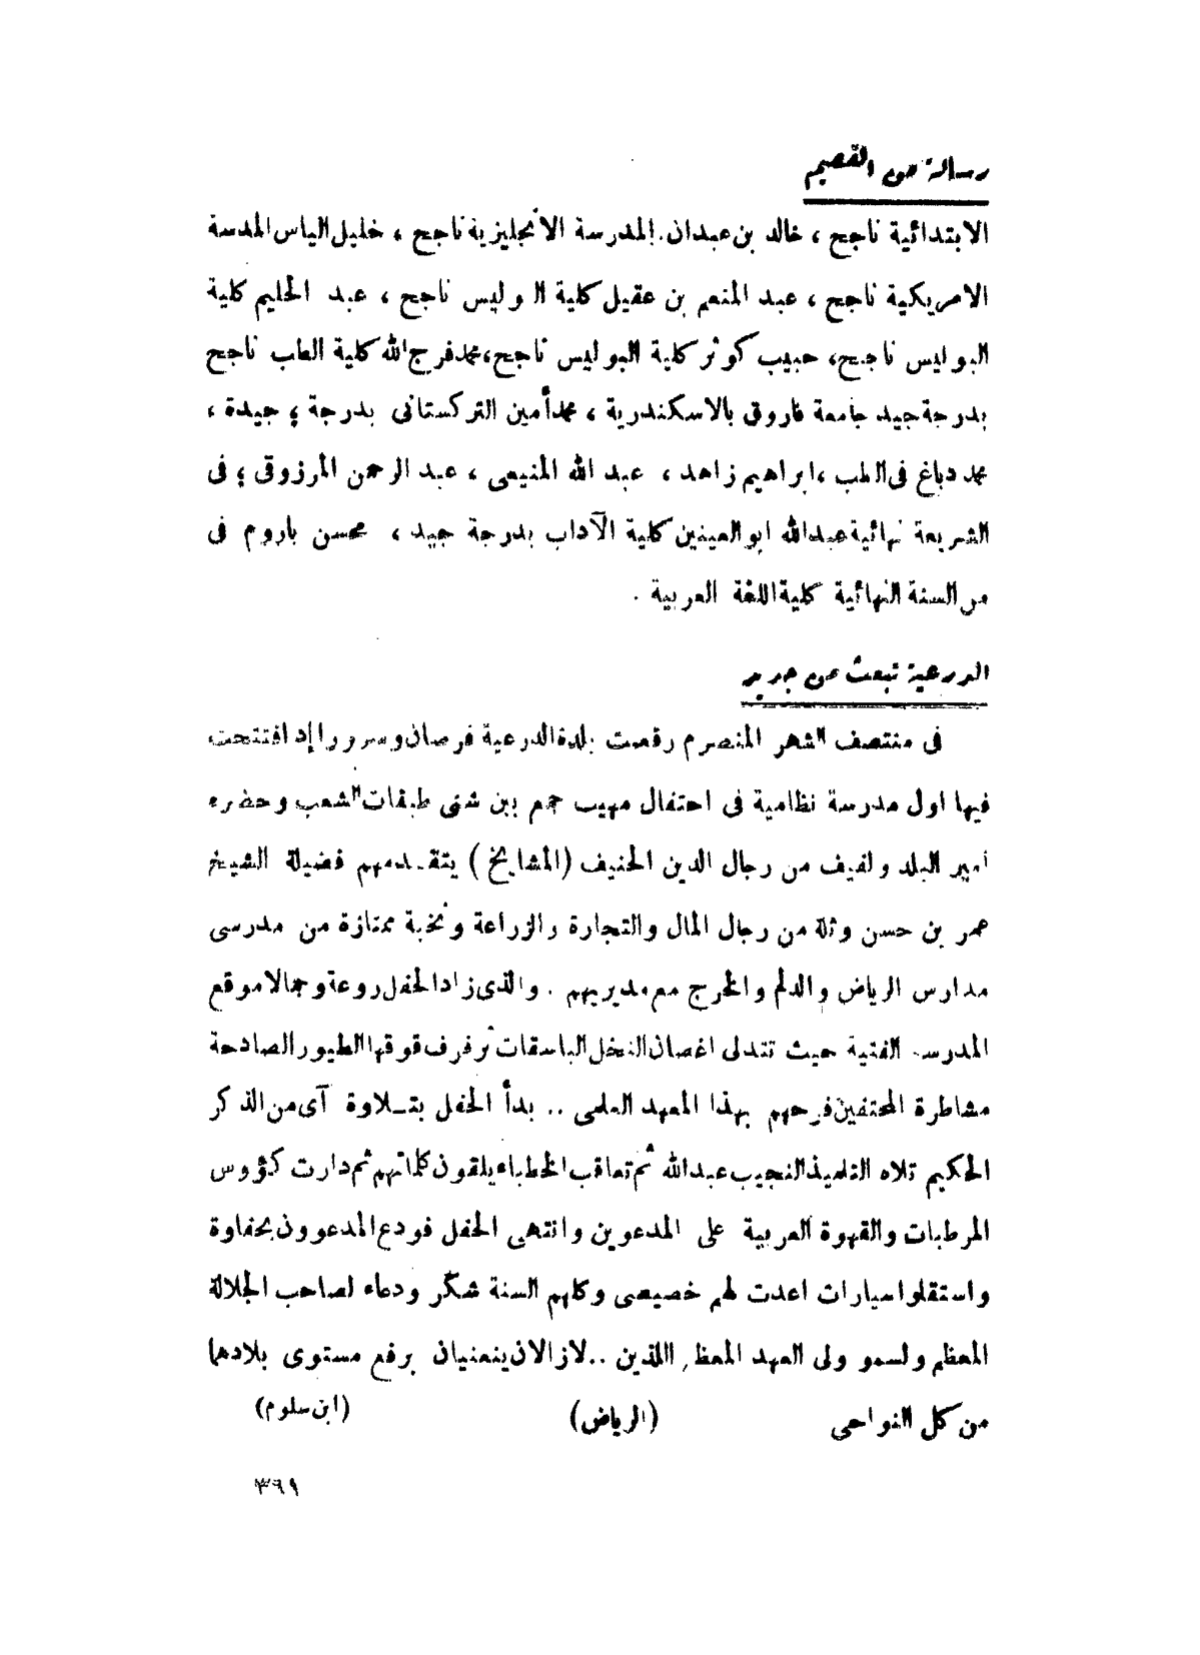 رسالة من القصيم
الابتدائية ناجح ، خالد بن عبدان المدرسة الانجليزية ناجح ، خليل الياس المدسة
الامريكية ناجح ، عبد المنعم بن عقيل كلية الوليس ناجح ، عبد الحليم كلية
البوليس ناجح، حبيب كوثر كلية البوليس ناجح، محمد فرج الله كلية الطب ناجح
بدرجة جيد جامعة فاروق بالاسكندرية ، محمد أمين التركستانى بدرجة ؛ جيدة ،
محمد دباغ فى الطب ، ابراهيم زاهد ، عبد الله المنيعى ، عبد الرحمن المرزوقى ؛ فى
الشريعة نهائية عبد الله ابو العينين كلية الآداب بدرجة جيد ، محسن باروم فى
من السنة النهائية كلية اللغة العربية .
الدرعية تبعث من جديد
فى منتصف الشهر المنصرم رقصت بلدة الدرعية فرصان وسرورا إذ افتتحت
فيها اول مدرسة نظامية فى احتفال مهيب جمع بين شتى طبقات الشعب وحضره
أمير البلد ولفيف من رجال الدين الحنيف (المشايخ) يتقدمهم فضيلة الشيخ
عمر بن حسن وثلة من رجال المال والتجارة والزراعة ونخبة ممتازة من مدرسى
مدارس الرياض والدلم والخرج مع مديريهم . والذى زاد الحفل روعة وجمالا موقع
المدرسة الفتية حيث تتدلى اغصان النخل الباسقات ترفرف فوقها الطيور الصادحة
مشاطرة المحتفين فرحهم بهذا المعهد العلمى .. بدأ الحفل بتلاوة آى من الذكر
الحكيم تلاه التلميذ النجيب عبد الله ثم تعاقب الخطباء يلقون كلماتهم ثم دارت كؤوس
المرطبات والقهوة العربية على المدعوين وانتهى الحفل فودع المدعوون بحفاوة
واستقلوا سيارات اعدت لهم خصيصى وكلهم السنة شكر ودعاء لصاحب الجلالة
المعظم ولسمو ولى العهد المعظم اللذين .. لازالان ينعنيان برفع مستوى بلادهما
من كل النواحى (الرياض) (ابن سلوم)
٣٦٩